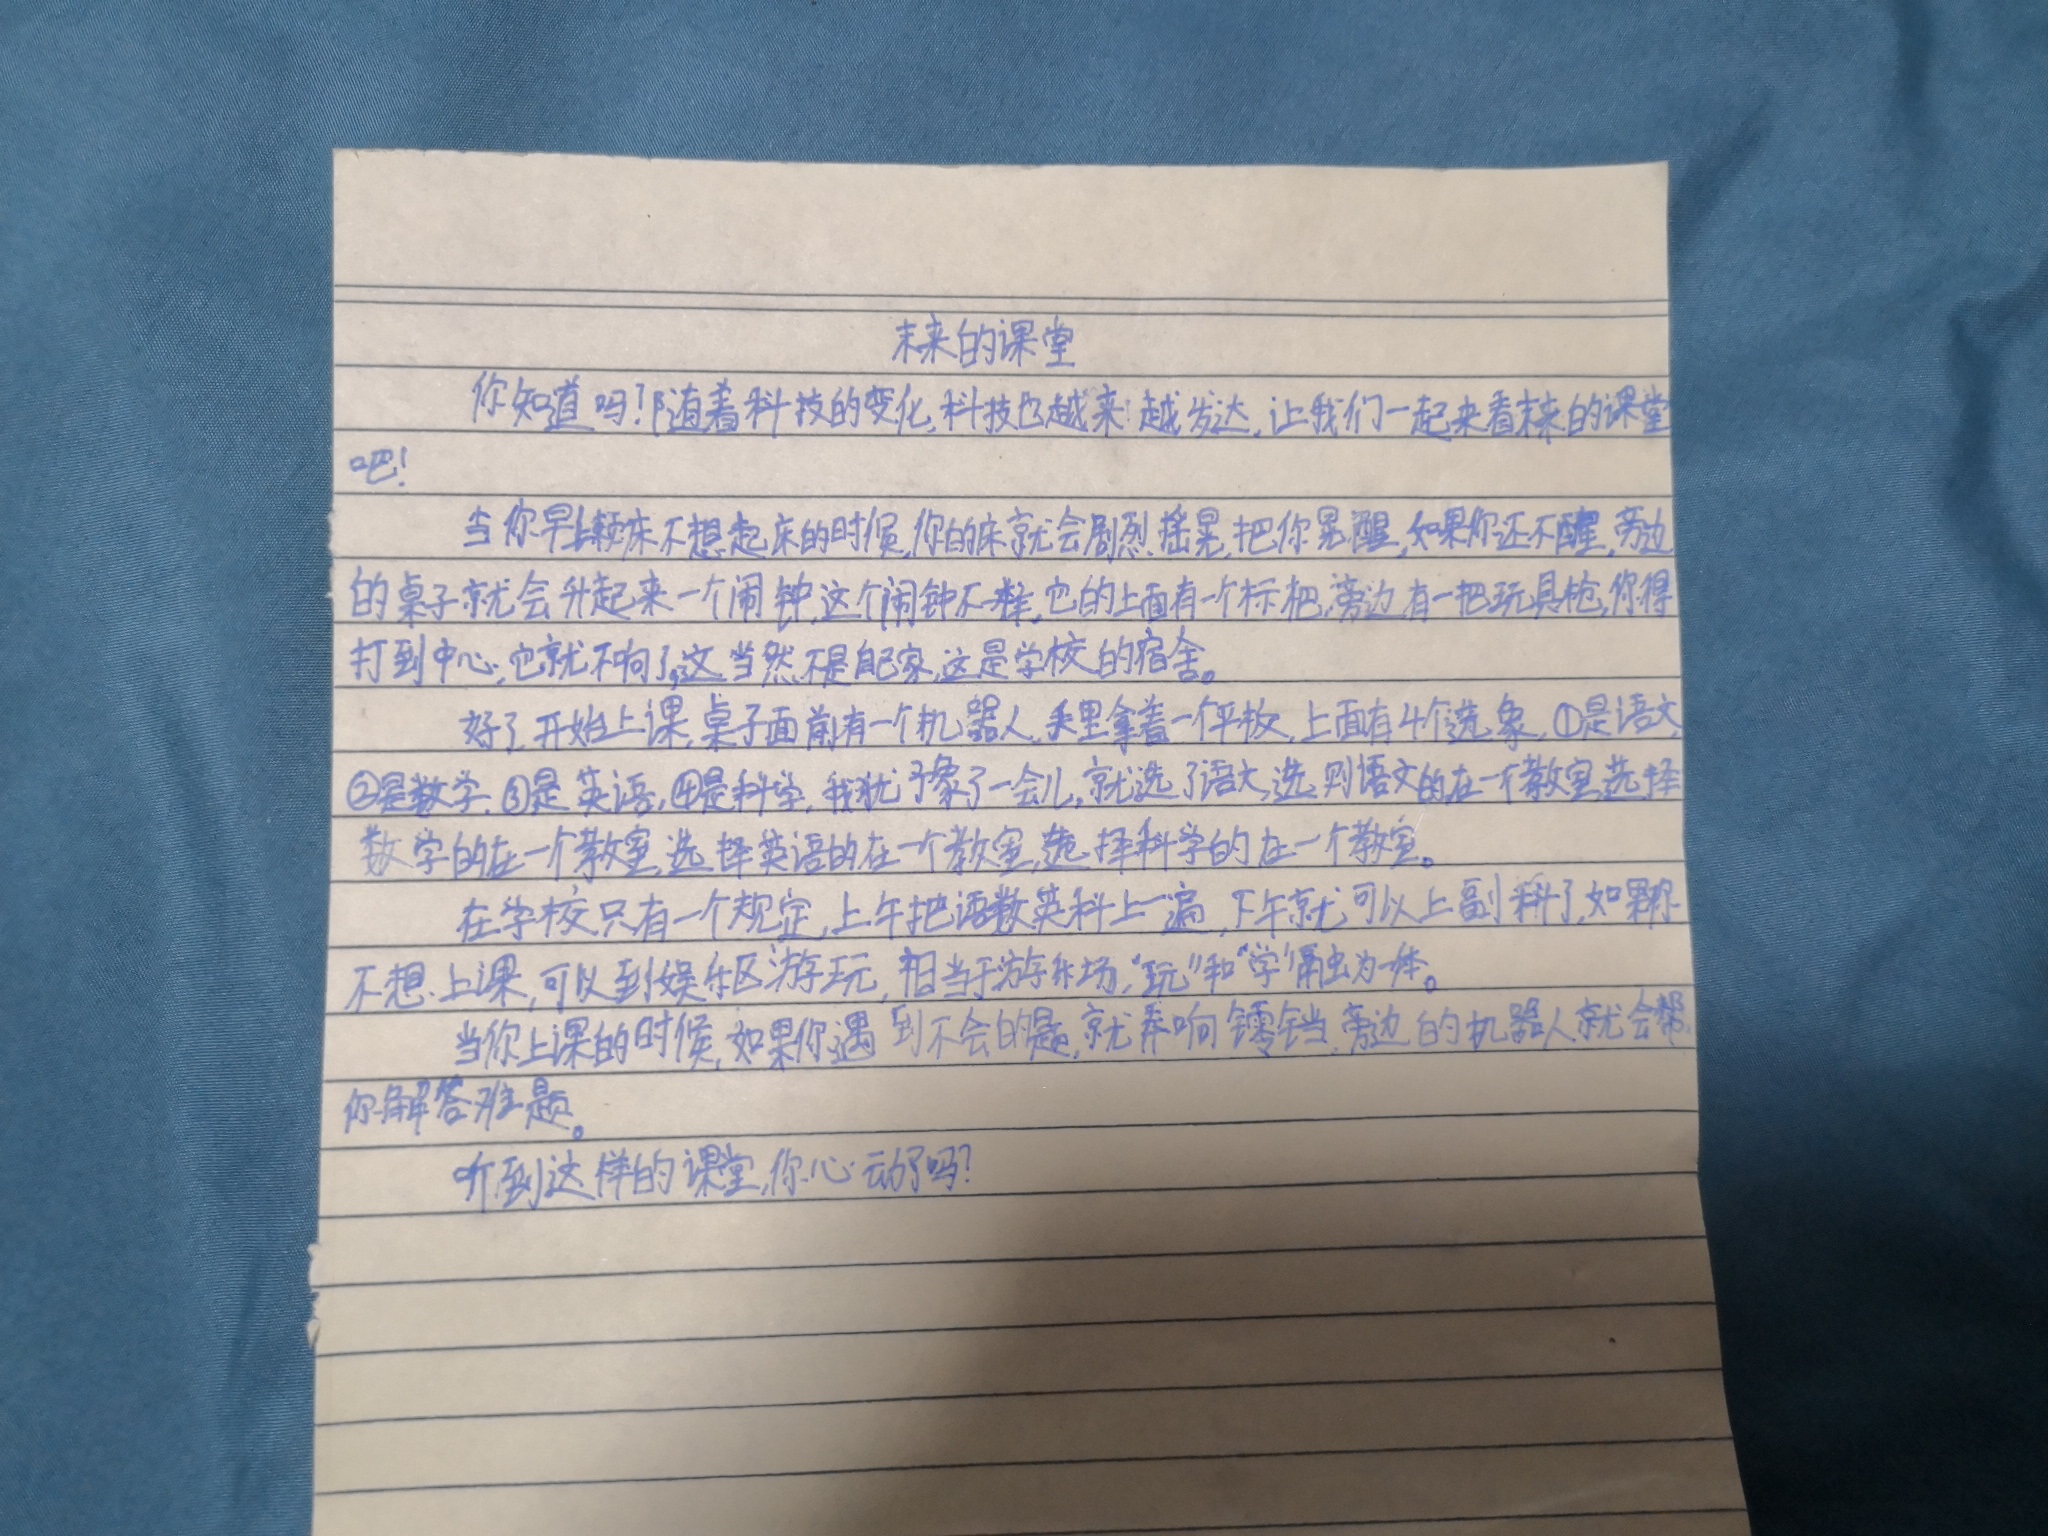 未来的课堂
你知道吗?随着科技的变化,科技也越来越发达,让我们一起来看未来的课堂
吧!
当你早上躺床不想起床的时候,你的床就会剧烈摇晃,把你晃醒,如果你还不醒,旁边
的桌子就会升起来一个闹钟,这个闹钟不一样,它的上面有一个标把,旁边有一把玩具枪,你得
打到中心,它就不响了,这当然不是自己家,这是学校的宿舍。
好了,开始上课,桌子面前有一个机器人,手里拿着一个平板,上面有4个选象,①是语文,
②是数学,③是英语,④是科学,我犹予象了一会儿,就选了语文,选则语文的在一个教室,选择
数学的在一个教室,选择英语的在一个教室,选择科学的在一个教室。
在学校只有一个规定,上午把语数英科上一遍,下午就可以上副科了,如果你
不想上课,可以到娱乐区游玩,相当于游乐场,“玩”和“学”融为一体。
当你上课的时候,如果你遇到不会的题,就弄响铃铛,旁边的机器人就会帮
你解答难题。
听到这样的课堂,你心动了吗?